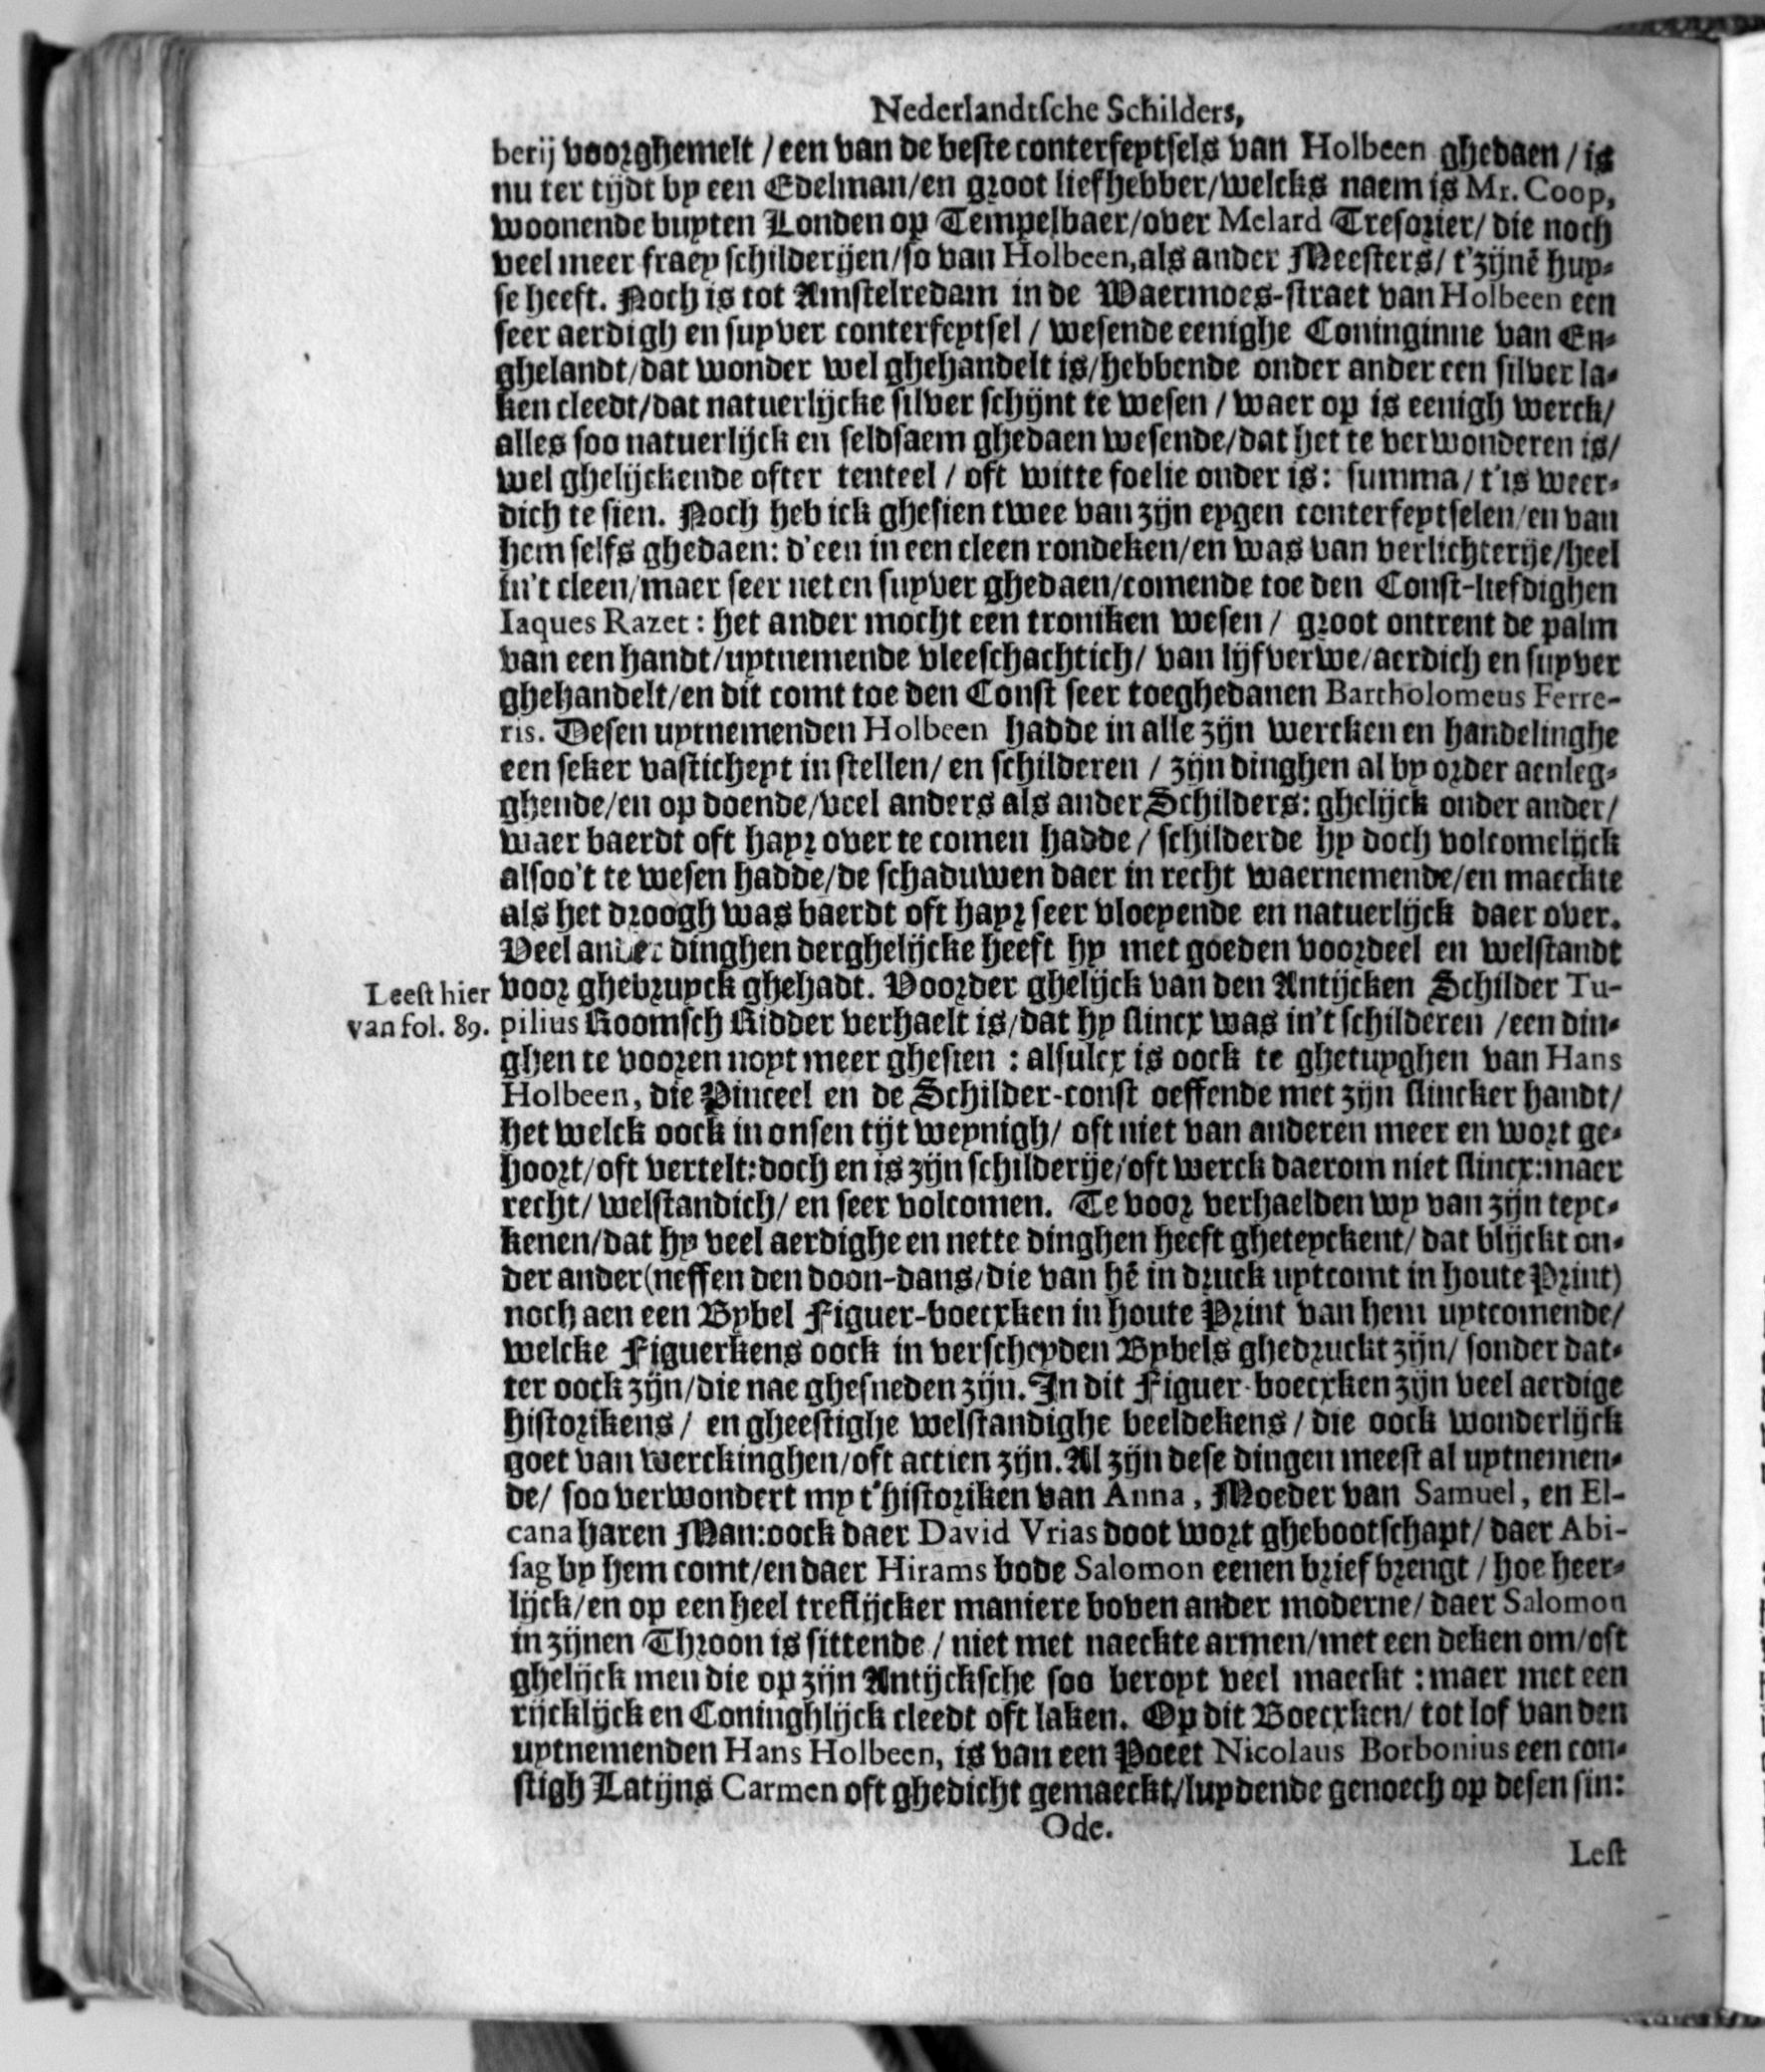 Nederlandtsche Schilders,
berij voorghemelt / een van de beste conterfeytsels van Holbeen ghedaen / is
nu ter tijdt by een Edelman/en groot liefhebber/welcks naem is Mr. Coop,
woonende buyten Londen op Tempelbaer/over Melard Tresorier/ die noch
veel meer fraey schilderijen/so van Holbeen, als ander Meesters/ t'zijnē huy-
se heeft. Noch is tot Amstelredam in de Waermoes-straet van Holbeen een
seer aerdigh en suyver conterfeytsel / wesende eenighe Coninginne van En-
ghelandt/dat wonder wel ghehandelt is/hebbende onder ander een silver la-
ken cleedt/dat natuerlijcke silver schijnt te wesen / waer op is eenigh werck/
alles soo natuerlijck en seldsaem ghedaen wesende/dat het te verwonderen is/
wel ghelijckende ofter tenteel / oft witte foelie onder is: summa/ t'is weer-
dich te sien. Noch heb ick ghesien twee van zijn eygen conterfeytselen/en van
hem selfs ghedaen: d'een in een cleen rondeken/en was van verlichterije/heel
in't cleen/maer seer net en suyver ghedaen/comende toe den Const-liefdighen
Iaques Razet: het ander mocht een troniken wesen / groot ontrent de palm
van een handt/uytnemende vleeschachtich/ van lijfverwe/aerdich en suyver
ghehandelt/en dit comt toe den Const seer toeghedanen Bartholomeus Ferre-
ris. Desen uytnemenden Holbeen hadde in alle zijn wercken en handelinghe
een seker vasticheyt in stellen/ en schilderen / zijn dinghen al by order aenleg-
ghende/en op doende/veel anders als ander Schilders: ghelijck onder ander/
waer baerdt oft hayr over te comen hadde / schilderde hy doch volcomelijck
alsoo't te wesen hadde/de schaduwen daer in recht waernemende/en maeckte
als het droogh was baerdt oft hayr seer vloeyende en natuerlijck daer over.
Veel ander dinghen derghelijcke heeft hy met goeden voordeel en welstandt
Leest hier voor ghebruyck ghehadt. Voorder ghelijck van den Antijcken Schilder Tu-
van fol. 89. pilius Roomsch Ridder verhaelt is/dat hy slincx was in't schilderen /een din-
ghen te vooren noyt meer ghesien : alsulcx is oock te ghetuyghen van Hans
Holbeen, die Pinceel en de Schilder-const oeffende met zijn slincker handt/
het welck oock in onsen tijt weynigh/ oft niet van anderen meer en wort ge-
hoort/oft vertelt: doch en is zijn schilderije/oft werck daerom niet slincx: maer
recht/ welstandich/ en seer volcomen. Te voor verhaelden wy van zijn teyc-
kenen/dat hy veel aerdighe en nette dinghen heeft gheteyckent/ dat blijckt on-
der ander (neffen den doon-dans/die van hē in druck uytcomt in houte Print)
noch aen een Bybel Figuer-boecxken in houte Print van hem uytcomende/
welcke Figuerkens oock in verscheyden Bybels ghedruckt zijn/ sonder dat-
ter oock zijn/die nae ghesneden zijn. In dit Figuer-boecxken zijn veel aerdige
historikens / en gheestighe welstandighe beeldekens / die oock wonderlijck
goet van werckinghen/oft actien zijn. Al zijn dese dingen meest al uytnemen-
de/ soo verwondert my t'historiken van Anna, Moeder van Samuel, en El-
cana haren Man: oock daer David Vrias doot wort ghebootschapt/ daer Abi-
sag by hem comt/en daer Hirams bode Salomon eenen brief brengt / hoe heer-
lijck/en op een heel treflijcker maniere boven ander moderne/ daer Salomon
in zijnen Throon is sittende / niet met naeckte armen/met een deken om/oft
ghelijck men die op zijn Antijcksche soo beroyt veel maeckt : maer met een
rijcklijck en Coninghlijck cleedt oft laken. Op dit Boecxken/ tot lof van den
uytnemenden Hans Holbeen, is van een Poeet Nicolaus Borbonius een con-
stigh Latijns Carmen oft ghedicht gemaeckt/luydende genoech op desen sin:
Ode.
Lest